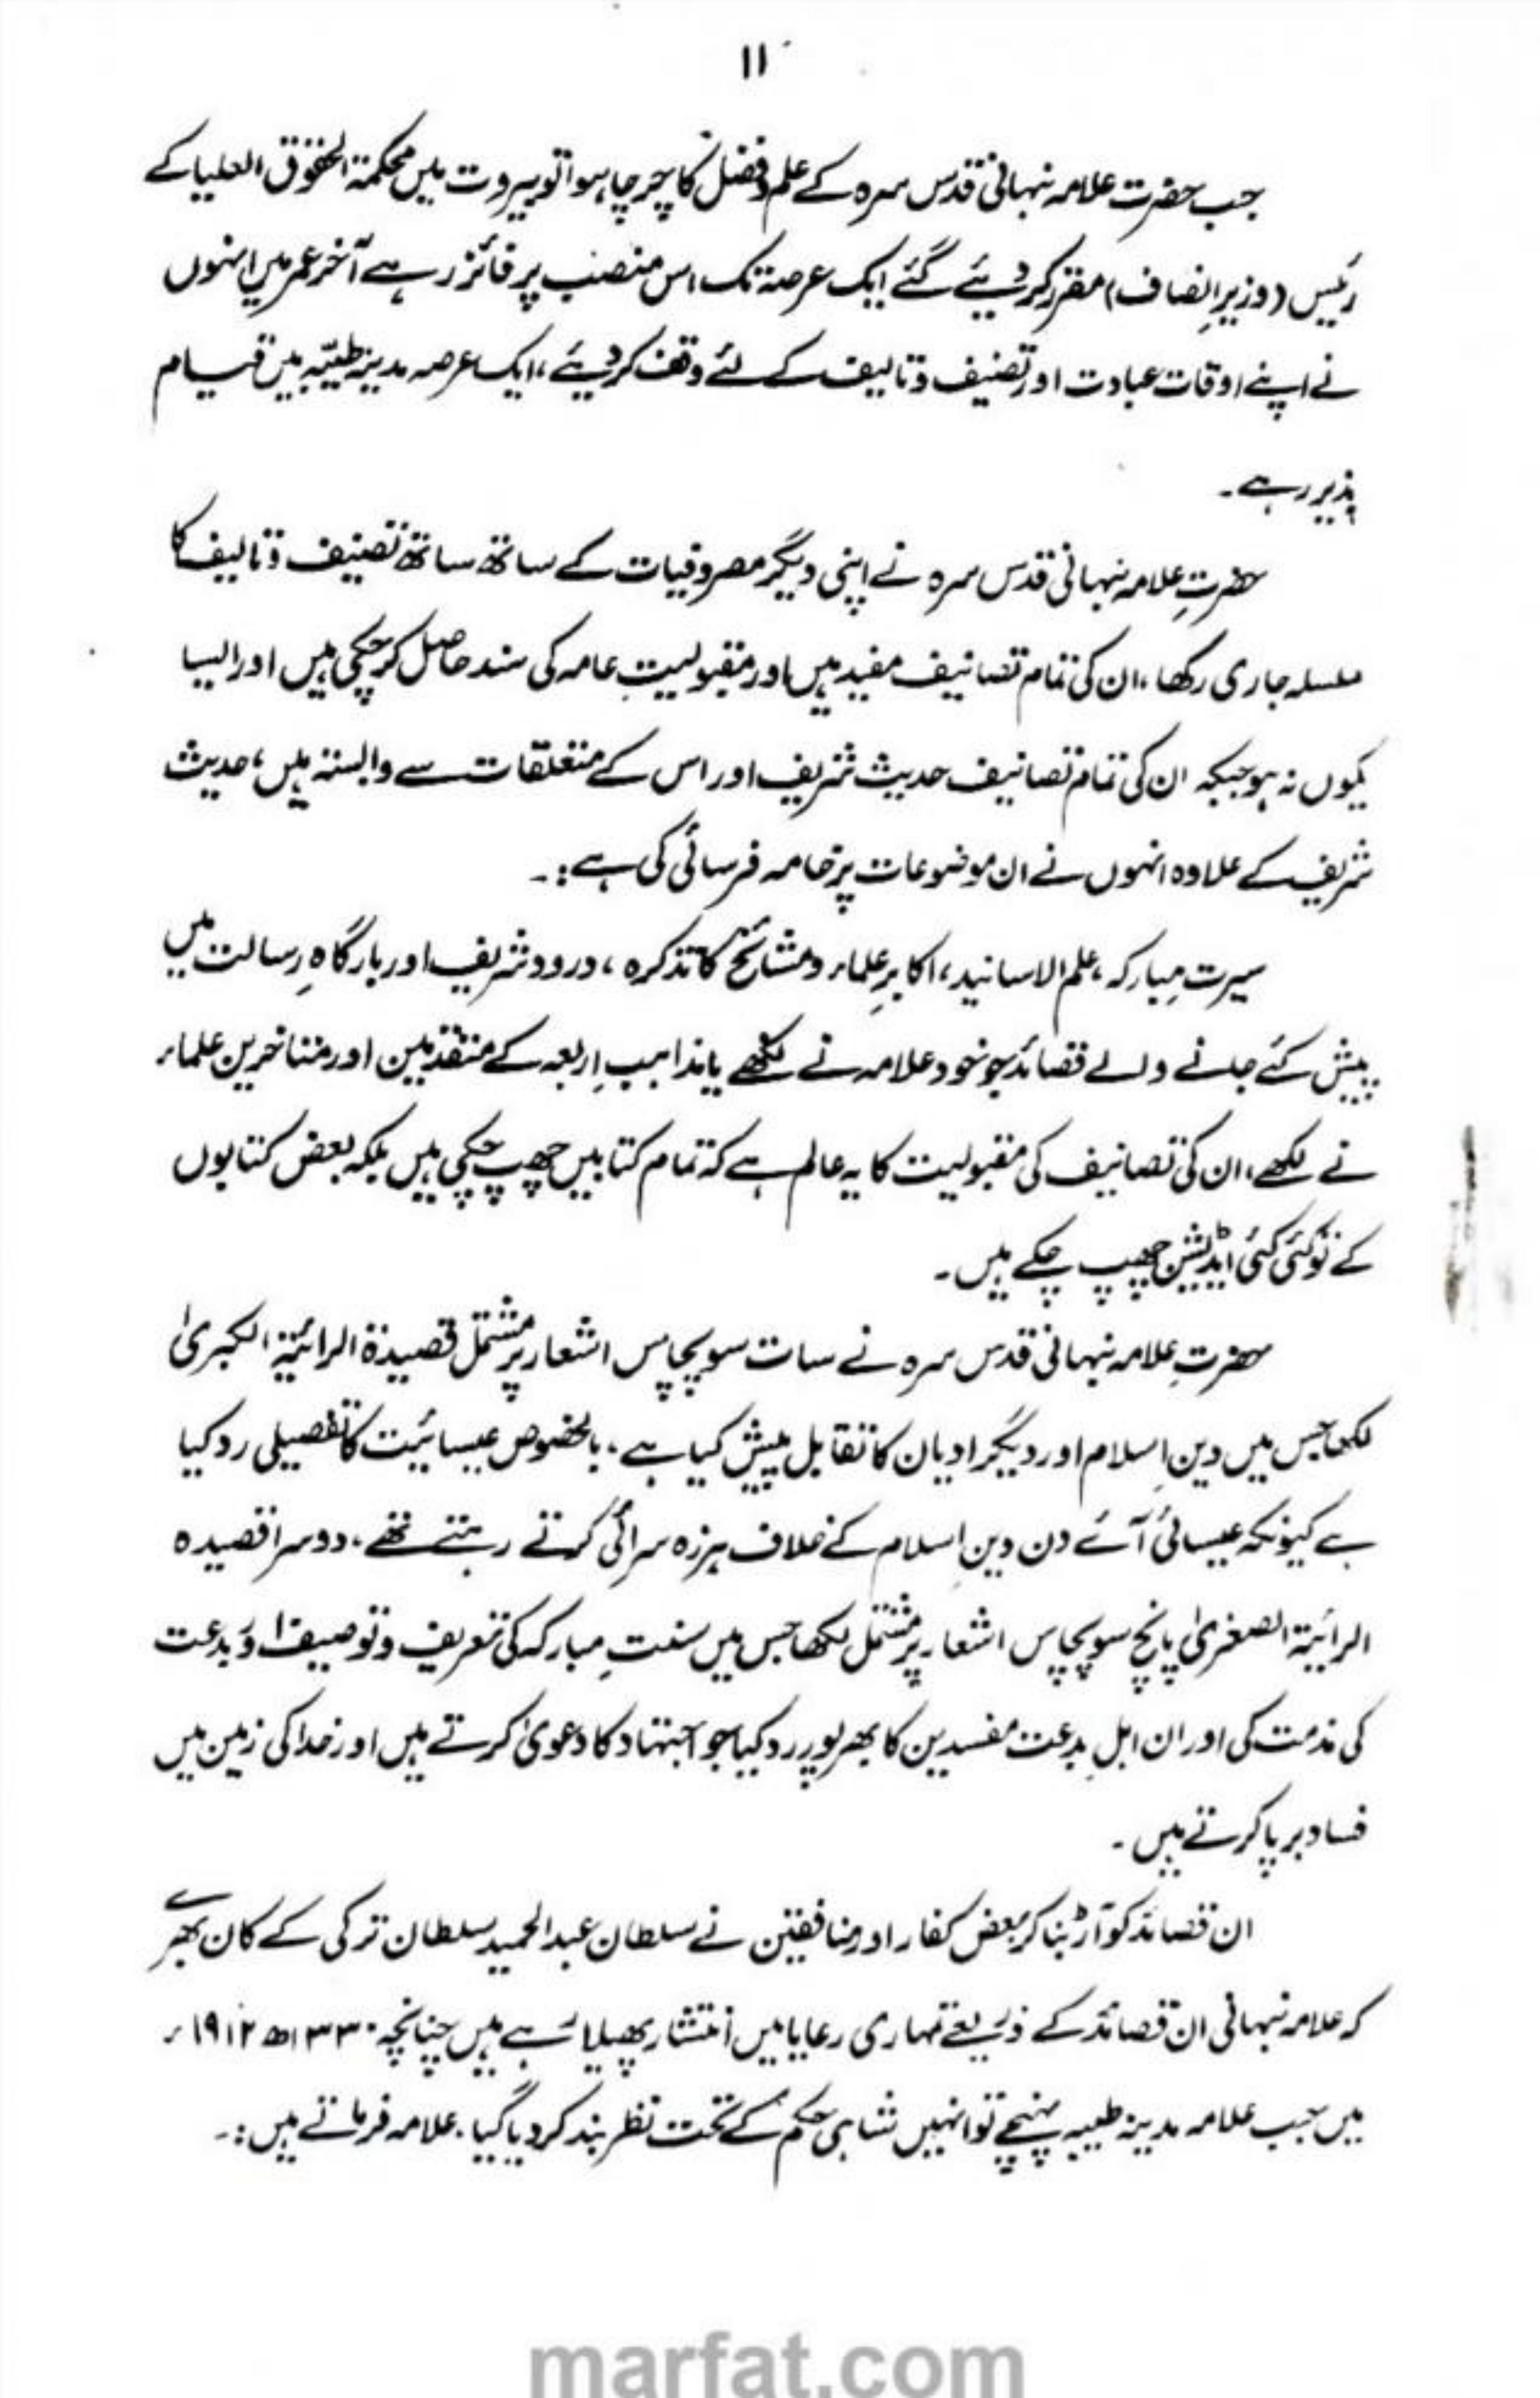 ۱۱
جب حضرت علامہ نبہانی قدس سرہ کے علم و فضل کا چرچا ہوا تو بیروت میں محکمۃ الحقوق العلیا کے
رئیس (وزیرِ انصاف) مقرر کر دیئے گئے ایک عرصہ تک اس منصب پر فائز رہے آخر عمر میں انہوں
نے اپنے اوقات عبادت اور تصنیف و تالیف کے لئے وقف کر دیئے، ایک عرصہ مدینہ طیبہ میں قیام
پذیر رہے۔
حضرتِ علامہ نبہانی قدس سرہ نے اپنی دیگر مصروفیات کے ساتھ ساتھ تصنیف و تالیف کا
سلسلہ جاری رکھا، ان کی تمام تصانیف مفید ہیں اور مقبولیتِ عامہ کی سند حاصل کر چکی ہیں اور ایسا
کیوں نہ ہو جبکہ ان کی تمام تصانیف حدیث شریف اور اس کے متعلقات سے وابستہ ہیں، حدیث
شریف کے علاوہ انہوں نے ان موضوعات پر خامہ فرسائی کی ہے :۔
سیرت مبارکہ، علم الاسانید، اکابرِ علماء و مشائخ کا تذکرہ، درود شریف اور بارگاہِ رسالت میں
پیش کئے جانے والے قصائد جو خود علامہ نے لکھے یا مذاہبِ اربعہ کے متقدمین اور متاخرین علماء
نے لکھے، ان کی تصانیف کی مقبولیت کا یہ عالم ہے کہ تمام کتابیں چھپ چکی ہیں بلکہ بعض کتابوں
کے تو کئی کئی ایڈیشن چھپ چکے ہیں۔
حضرتِ علامہ نبہانی قدس سرہ نے سات سو پچاس اشعار پر مشتمل قصیدۃ الرائیۃ الکبریٰ
لکھا جس میں دینِ اسلام اور دیگر ادیان کا تقابل پیش کیا ہے، بالخصوص عیسائیت کا تفصیلی رد کیا
ہے کیونکہ عیسائی آئے دن دینِ اسلام کے خلاف ہرزہ سرائی کرتے رہتے تھے، دوسرا قصیدہ
الرائیۃ الصغریٰ پانچ سو پچاس اشعار پر مشتمل لکھا جس میں سنتِ مبارکہ کی تعریف و توصیف اور بدعت
کی مذمت کی اور ان اہلِ بدعت مفسدین کا بھرپور رد کیا جو اجتہاد کا دعویٰ کرتے ہیں اور خدا کی زمین میں
فساد برپا کرتے ہیں۔
ان قصائد کو آڑ بنا کر بعض کفار اور منافقین نے سلطان عبدالحمید سلطان ترکی کے کان بھرے
کہ علامہ نبہانی ان قصائد کے ذریعے تمہاری رعایا میں انتشار پھیلا رہے ہیں چنانچہ ۱۳۳۰ھ ۱۹۱۲ء
میں جب علامہ مدینہ طیبہ پہنچے تو انہیں شاہی حکم کے تحت نظر بند کر دیا گیا۔ علامہ فرماتے ہیں :۔
marfat.com